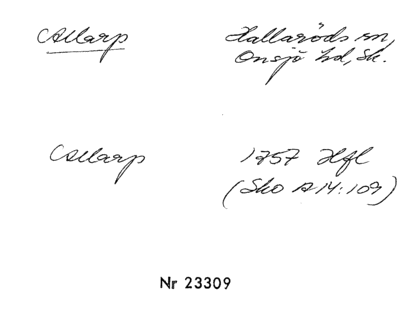 Allarp Hallaröds sn,
Onsjö hd, Sk.
Allarp 1757 Hfl
(Sko A 14:109)
Nr 23309